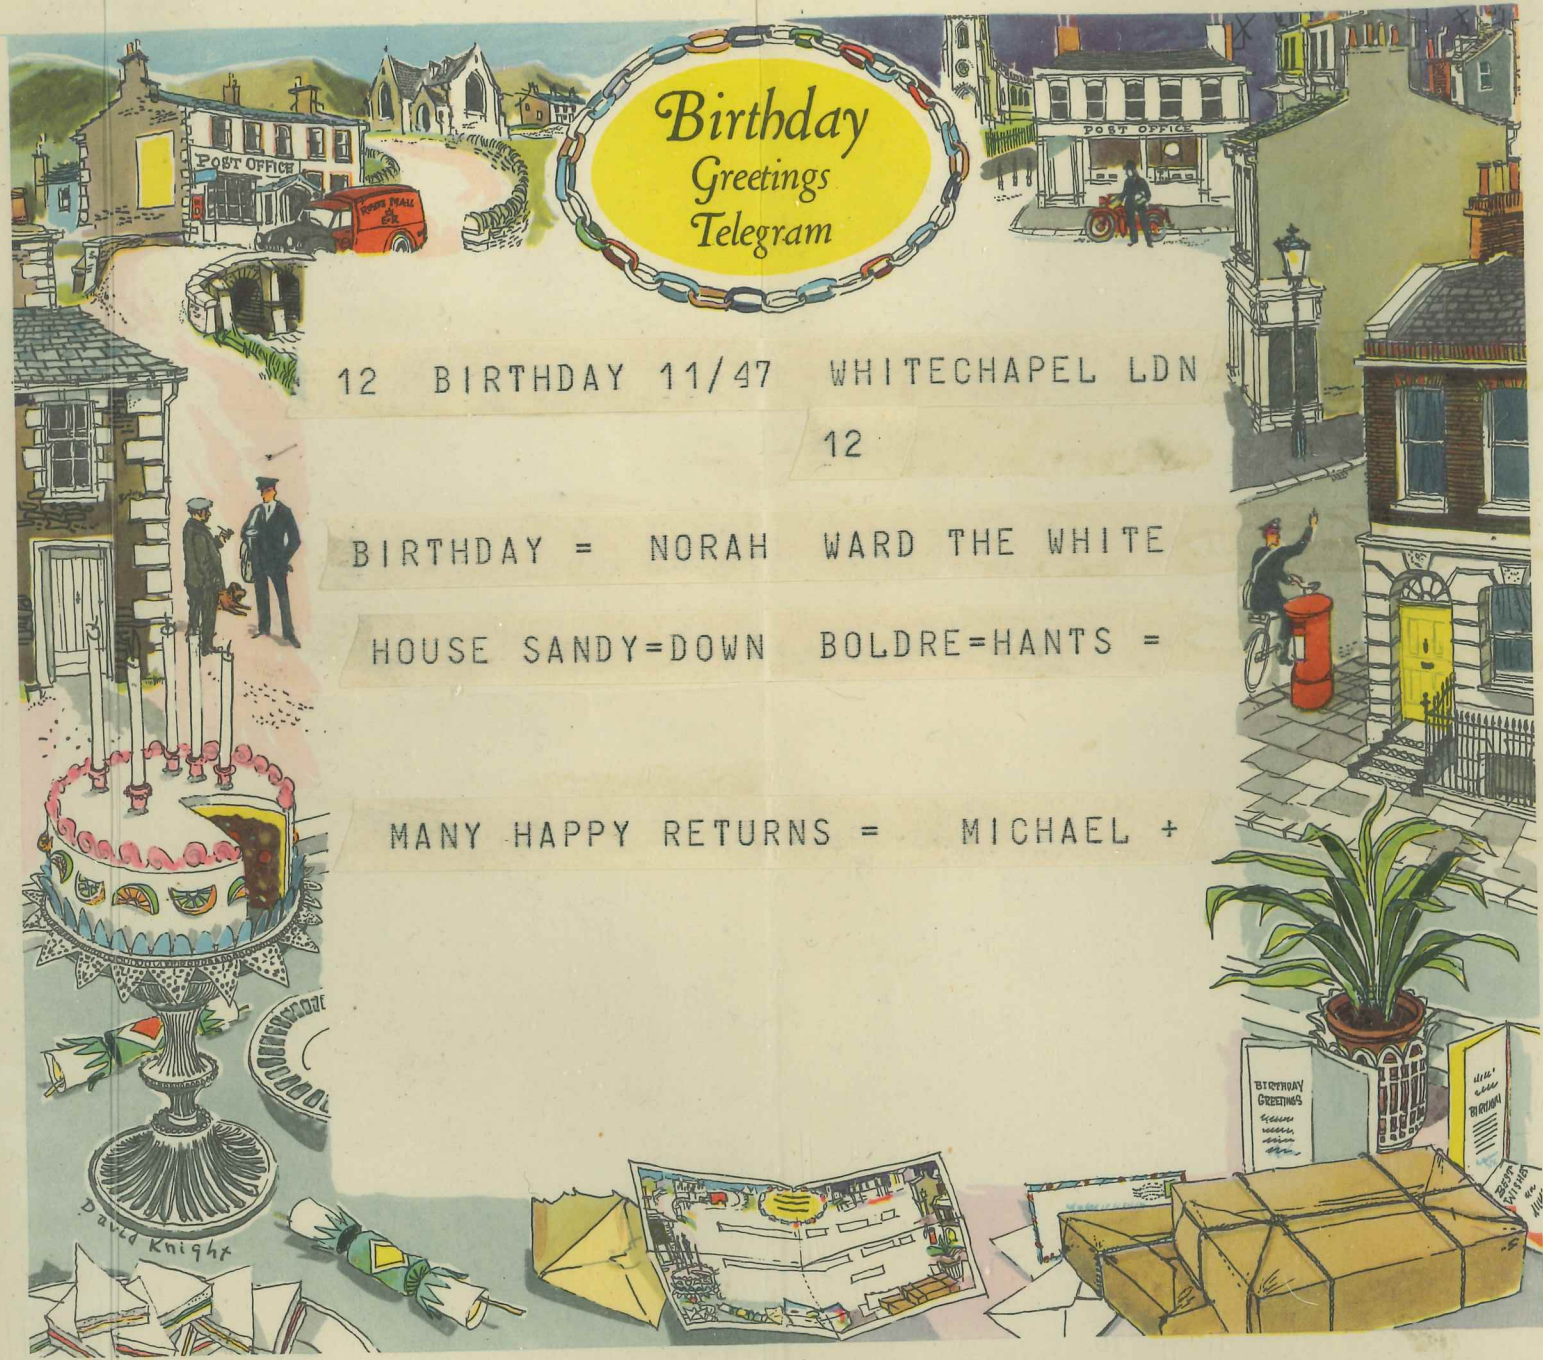 Birthday
Greetings
Telegram
POST OFFICE
ROYAL MAIL
E R
POST OFFICE
12 BIRTHDAY 11/47 WHITECHAPEL LDN
12
BIRTHDAY = NORAH WARD THE WHITE
HOUSE SANDY=DOWN BOLDRE=HANTS =
MANY HAPPY RETURNS = MICHAEL +
BIRTHDAY
GREETINGS
BEST
WISHES
David Knight